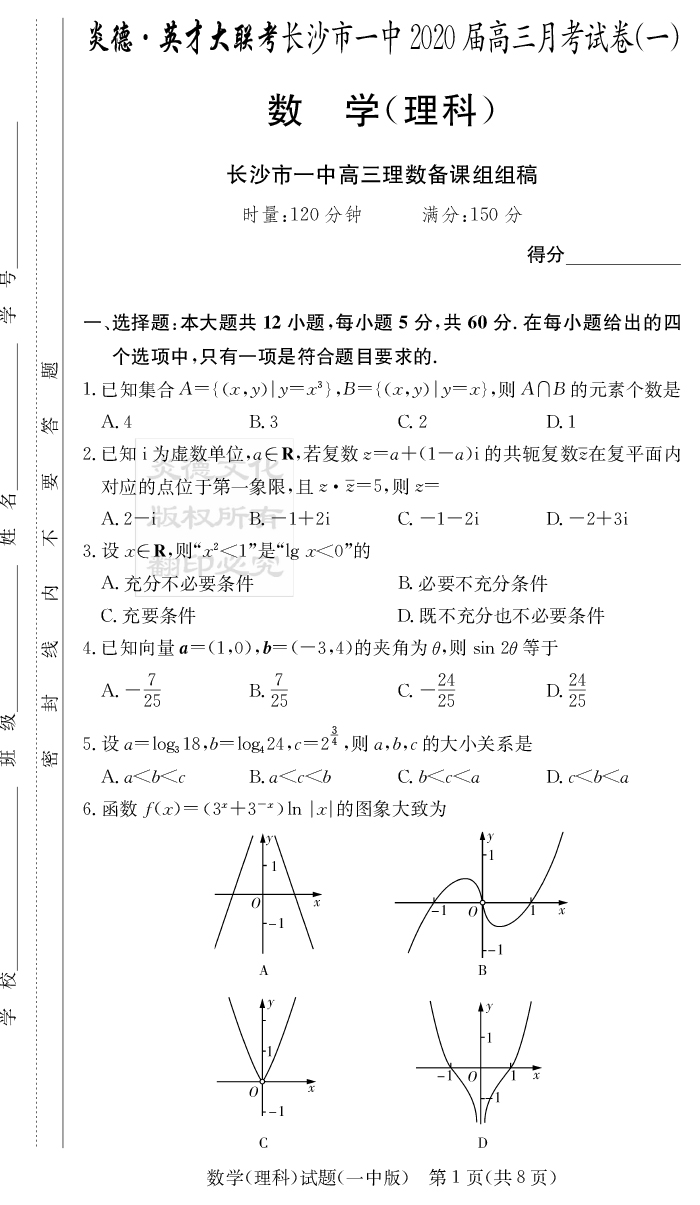 炎德·英才大联考长沙市一中2020届高三月考试卷(一)
数 学(理科)
长沙市一中高三理数备课组组稿
时量:120分钟 满分:150分
得分
一、选择题:本大题共12小题,每小题5分,共60分.在每小题给出的四
个选项中,只有一项是符合题目要求的.
1.已知集合A={(x,y)|y=x³},B={(x,y)|y=x},则A∩B的元素个数是
A.4 B.3 C.2 D.1
2.已知i为虚数单位,a∈R,若复数z=a+(1-a)i的共轭复数z̄在复平面内
对应的点位于第一象限,且z·z̄=5,则z=
A.2-i B.-1+2i C.-1-2i D.-2+3i
3.设x∈R,则“x²<1”是“lg x<0”的
A.充分不必要条件 B.必要不充分条件
C.充要条件 D.既不充分也不必要条件
4.已知向量a=(1,0),b=(-3,4)的夹角为θ,则sin 2θ等于
A.-7/25 B.7/25 C.-24/25 D.24/25
5.设a=log₃18,b=log₄24,c=2^(3/4),则a,b,c的大小关系是
A.a<b<c B.a<c<b C.b<c<a D.c<b<a
6.函数f(x)=(3ˣ+3⁻ˣ)ln |x|的图象大致为
y 1 O x -1
A
y 1 -1 O 1 x -1
B
y 1 O x -1
C
y 1 -1 O 1 x -1
D
数学(理科)试题(一中版) 第1页(共8页)
学 校 班 级 姓 名 学 号
密 封 线 内 不 要 答 题
炎德文化
版权所有
翻印必究